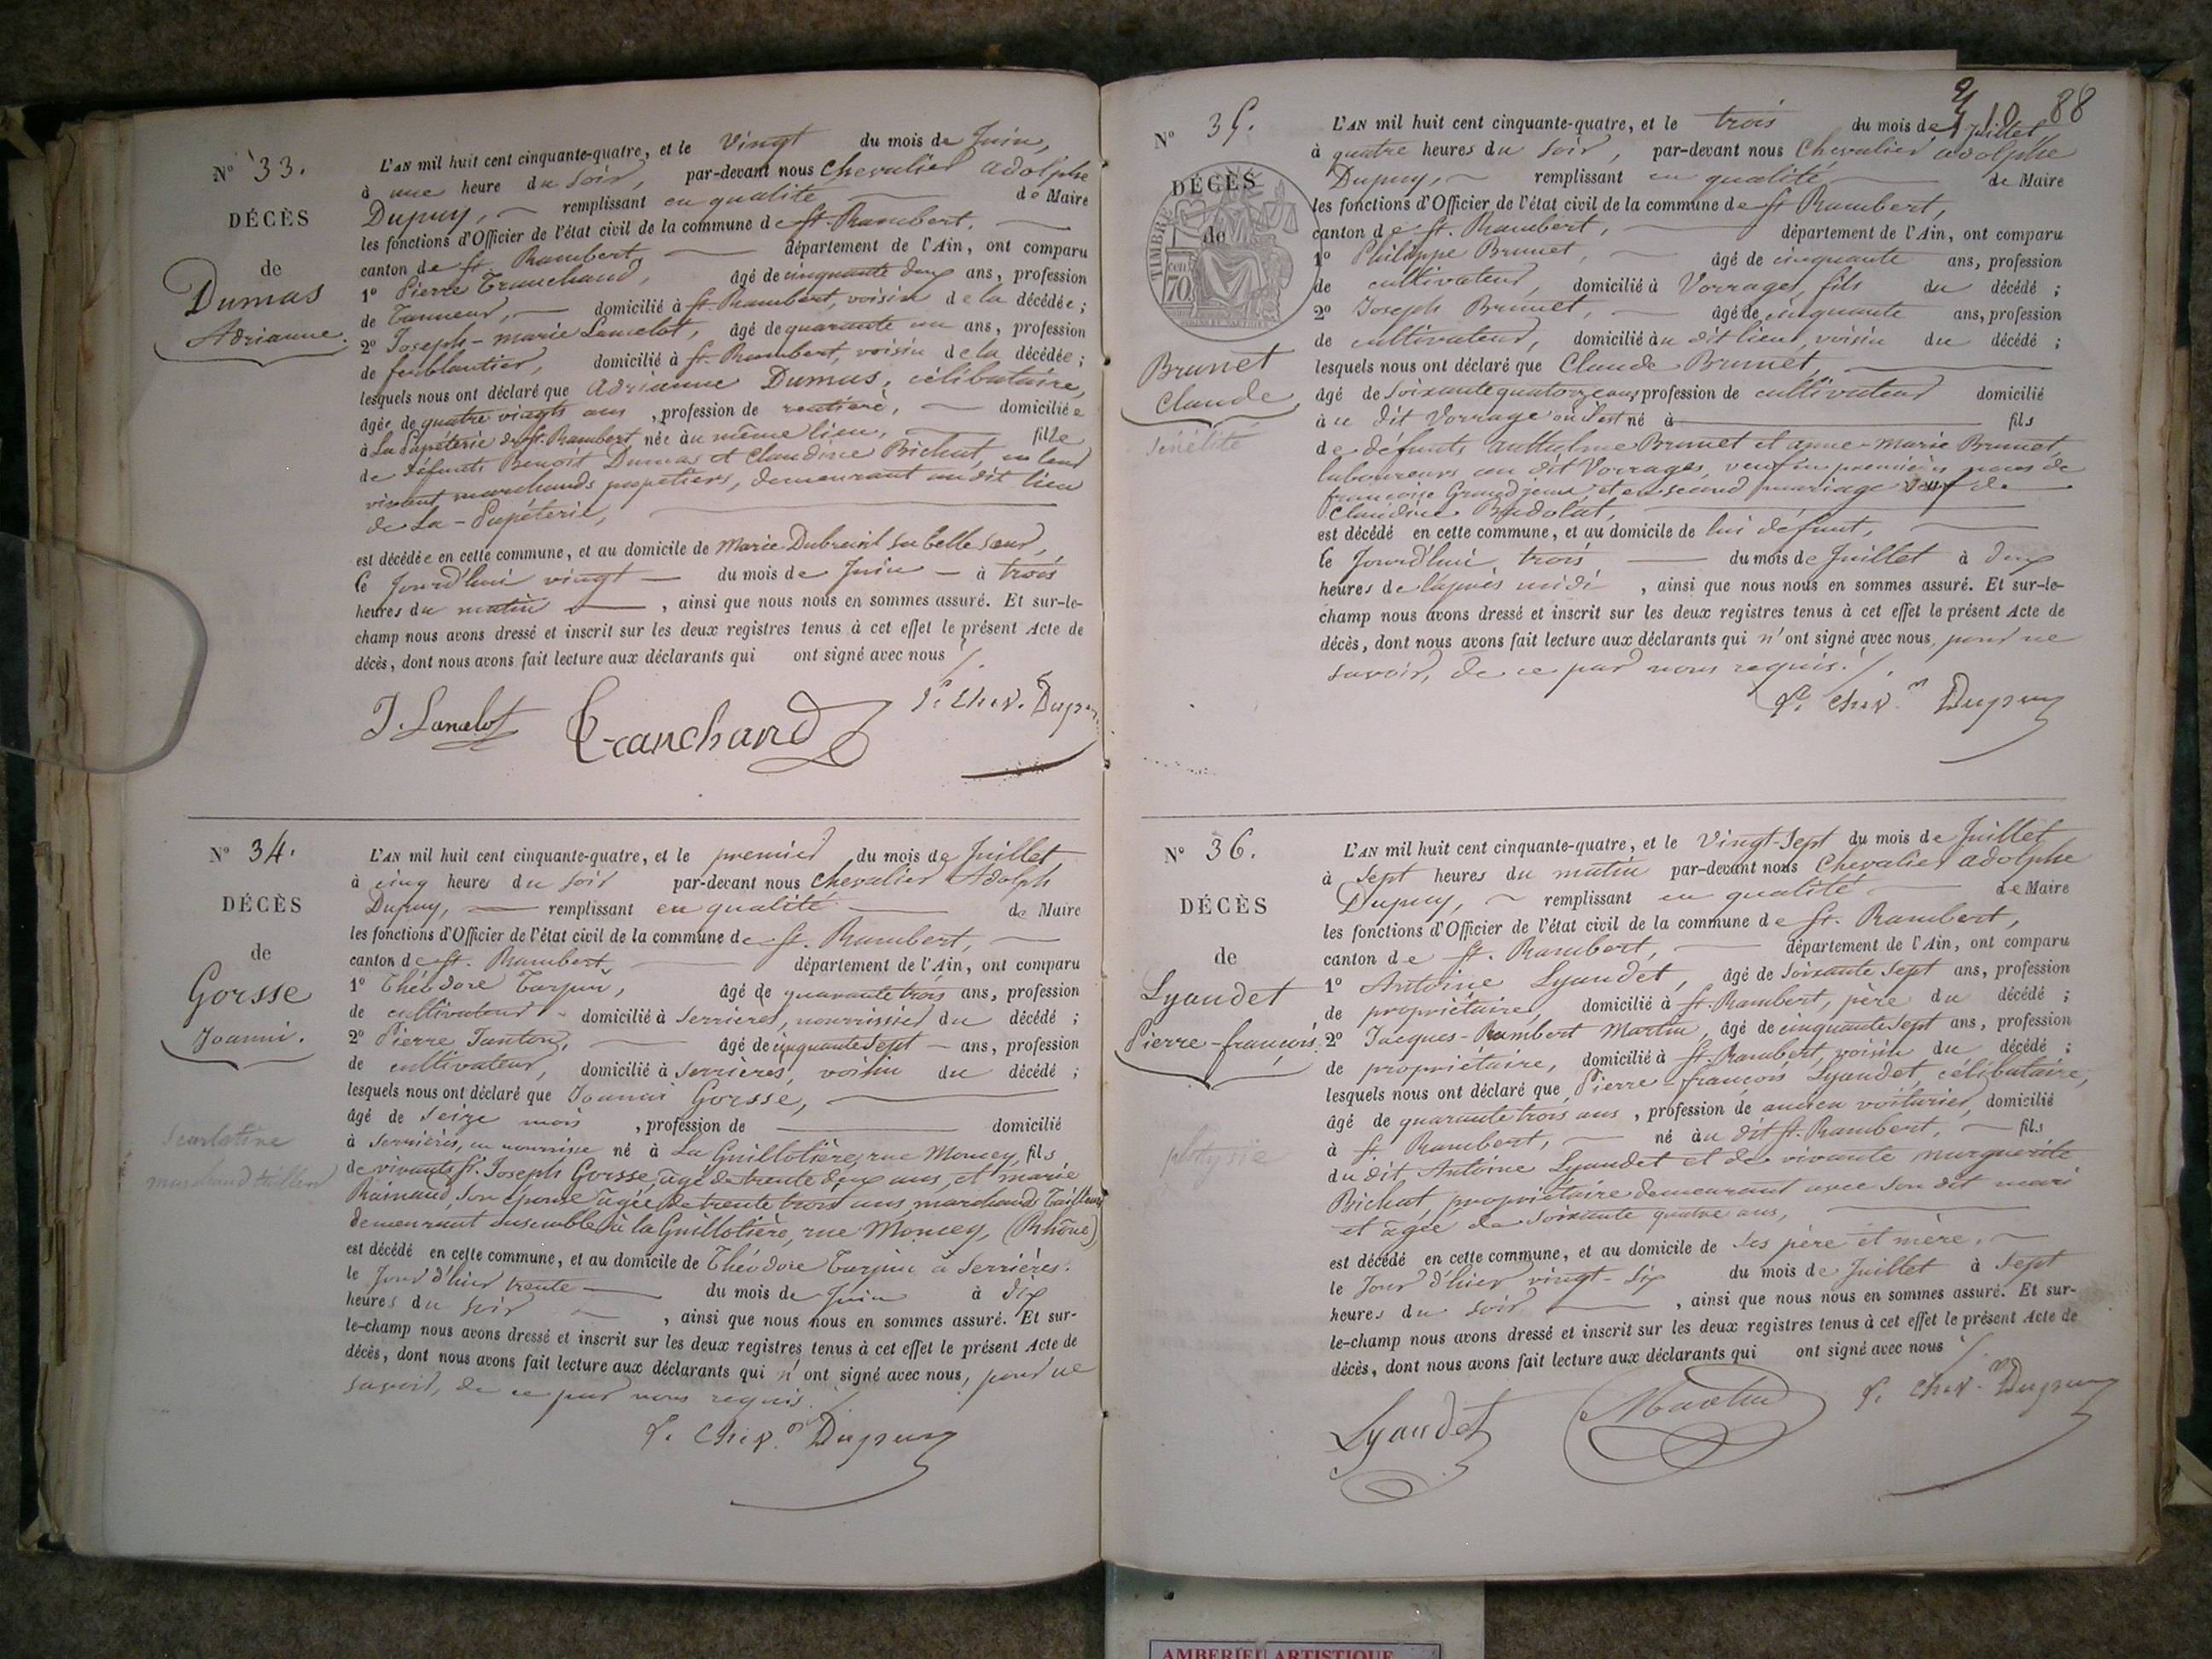 N° 33.
DÉCÈS
de
Dumas
Adrianne.
L'AN mil huit cent cinquante-quatre, et le Vingt du mois de Juin,
à une heure du soir, par-devant nous Chevalier Adolphe
Dupuy, remplissant en qualité de Maire
les fonctions d'Officier de l'état civil de la commune de St. Rambert,
canton de St. Rambert, département de l'Ain, ont comparu
1° Pierre Tranchand, âgé de cinquante deux ans, profession
de Tanneur, domicilié à St. Rambert, voisin de la décédée ;
2° Joseph-marie Lancelot, âgé de quarante un ans, profession
de ferblantier, domicilié à St. Rambert, voisin de la décédée ;
lesquels nous ont déclaré que Adrianne Dumas, célibataire,
âgée de quatre vingts ans, profession de rentière, domiciliée
à La Papéterie de St. Rambert née au même lieu, fille
de défunts Benoit Dumas et Claudine Bichat, en leur
vivant marchands papetiers, demeurant audit lieu
de La-Papéterie,
est décédée en cette commune, et au domicile de Marie Dubreuil sa belle sœur,
le Jourd'hui vingt du mois de Juin à trois
heures du matin, ainsi que nous nous en sommes assuré. Et sur-le-
champ nous avons dressé et inscrit sur les deux registres tenus à cet effet le présent Acte de
décès, dont nous avons fait lecture aux déclarants qui ont signé avec nous
J. Lancelot Tranchand Le Chev. Dupuy
N° 34.
DÉCÈS
de
Gorsse
Joanni.
Scarlatine
marchand tailleur
L'AN mil huit cent cinquante-quatre, et le premier du mois de Juillet,
à cinq heures du soir par-devant nous Chevalier Adolph
Dupuy, remplissant en qualité de Maire
les fonctions d'Officier de l'état civil de la commune de St. Rambert,
canton de St. Rambert, département de l'Ain, ont comparu
1° Théodore Turpin, âgé de quarante trois ans, profession
de cultivateur domicilié à Serrières, nourrissier du décédé ;
2° Pierre Tanton, âgé de cinquante Sept ans, profession
de cultivateur, domicilié à Serrières, voisin du décédé ;
lesquels nous ont déclaré que Joanni Gorsse,
âgé de Seize mois, profession de domicilié
à Serrières, en nourrise né à La Guillotière, rue Moncey, fils
de vivants Sr. Joseph Gorsse, âgé de trente deux ans, et marie
Rainaud, son épouse âgée de trente trois ans, marchand Tailleur
demeurant ensemble à la Guillotière, rue Moncey, (Rhône)
est décédé en cette commune, et au domicile de Théodore Turpin à Serrières.
le Jour d'hier trente du mois de Juin à dix
heures du soir, ainsi que nous nous en sommes assuré. Et sur-
le-champ nous avons dressé et inscrit sur les deux registres tenus à cet effet le présent Acte de
décès, dont nous avons fait lecture aux déclarants qui n'ont signé avec nous, pour ne
savoir, de ce par nous requis.
Le Chev. Dupuy
88
10
N° 35.
DÉCÈS
de
TIMBRE
70
Brunet
Claude
Sénélité
L'AN mil huit cent cinquante-quatre, et le trois du mois de Juillet
à quatre heures du soir, par-devant nous Chevalier adolphe
Dupuy, remplissant en qualité de Maire
les fonctions d'Officier de l'état civil de la commune de St Rambert,
canton de St. Rambert, département de l'Ain, ont comparu
1° Philippe Brunet, âgé de cinquante ans, profession
de cultivateur, domicilié à Vorrages, fils du décédé ;
2° Joseph Brunet, âgé de cinquante ans, profession
de cultivateur, domicilié au dit lieu, voisin du décédé ;
lesquels nous ont déclaré que Claude Brunet,
âgé de Soixante quatorze ans, profession de cultivateur domicilié
à ce dit Vorrage où il est né à fils
de défunts Anthelme Brunet et anne-marie Brunet,
laboureurs au dit Vorrages, veuf en premières noces de
françoise Grandjean, et en second mariage veuf de
Claudine Badolat,
est décédé en cette commune, et au domicile de lui défunt,
le Jourd'hui trois du mois de Juillet à deux
heures de l'après midi, ainsi que nous nous en sommes assuré. Et sur-le-
champ nous avons dressé et inscrit sur les deux registres tenus à cet effet le présent Acte de
décès, dont nous avons fait lecture aux déclarants qui n'ont signé avec nous, pour ne
savoir, de ce par nous requis.
Le Chev. Dupuy
N° 36.
DÉCÈS
de
Lyaudet
Pierre-françois.
phtysie
L'AN mil huit cent cinquante-quatre, et le Vingt-Sept du mois de Juillet
à Sept heures du matin par-devant nous Chevalier adolphe
Dupuy, remplissant en qualité de Maire
les fonctions d'Officier de l'état civil de la commune de St. Rambert,
canton de St. Rambert, département de l'Ain, ont comparu
1° Antoine Lyaudet, âgé de Soixante Sept ans, profession
de propriétaire, domicilié à St. Rambert, père du décédé ;
2° Jacques-Rambert Martin, âgé de cinquante Sept ans, profession
de propriétaire, domicilié à St. Rambert, voisin du décédé ;
lesquels nous ont déclaré que Pierre-françois Lyaudet, célibataire,
âgé de quarante trois ans, profession de ancien voiturier, domicilié
à St. Rambert, né au dit St. Rambert, fils
du dit Antoine Lyaudet et de vivante marguerite
Bichat, propriétaire demeurant avec son dit mari
et âgée de soixante quatre ans,
est décédé en cette commune, et au domicile de ses père et mère,
le Jour d'hier vingt-Six du mois de Juillet à Sept
heures du soir, ainsi que nous nous en sommes assuré. Et sur-
le-champ nous avons dressé et inscrit sur les deux registres tenus à cet effet le présent Acte de
décès, dont nous avons fait lecture aux déclarants qui ont signé avec nous
Lyaudet Martin Le Chev. Dupuy
AMBERIEU ARTISTIQUE